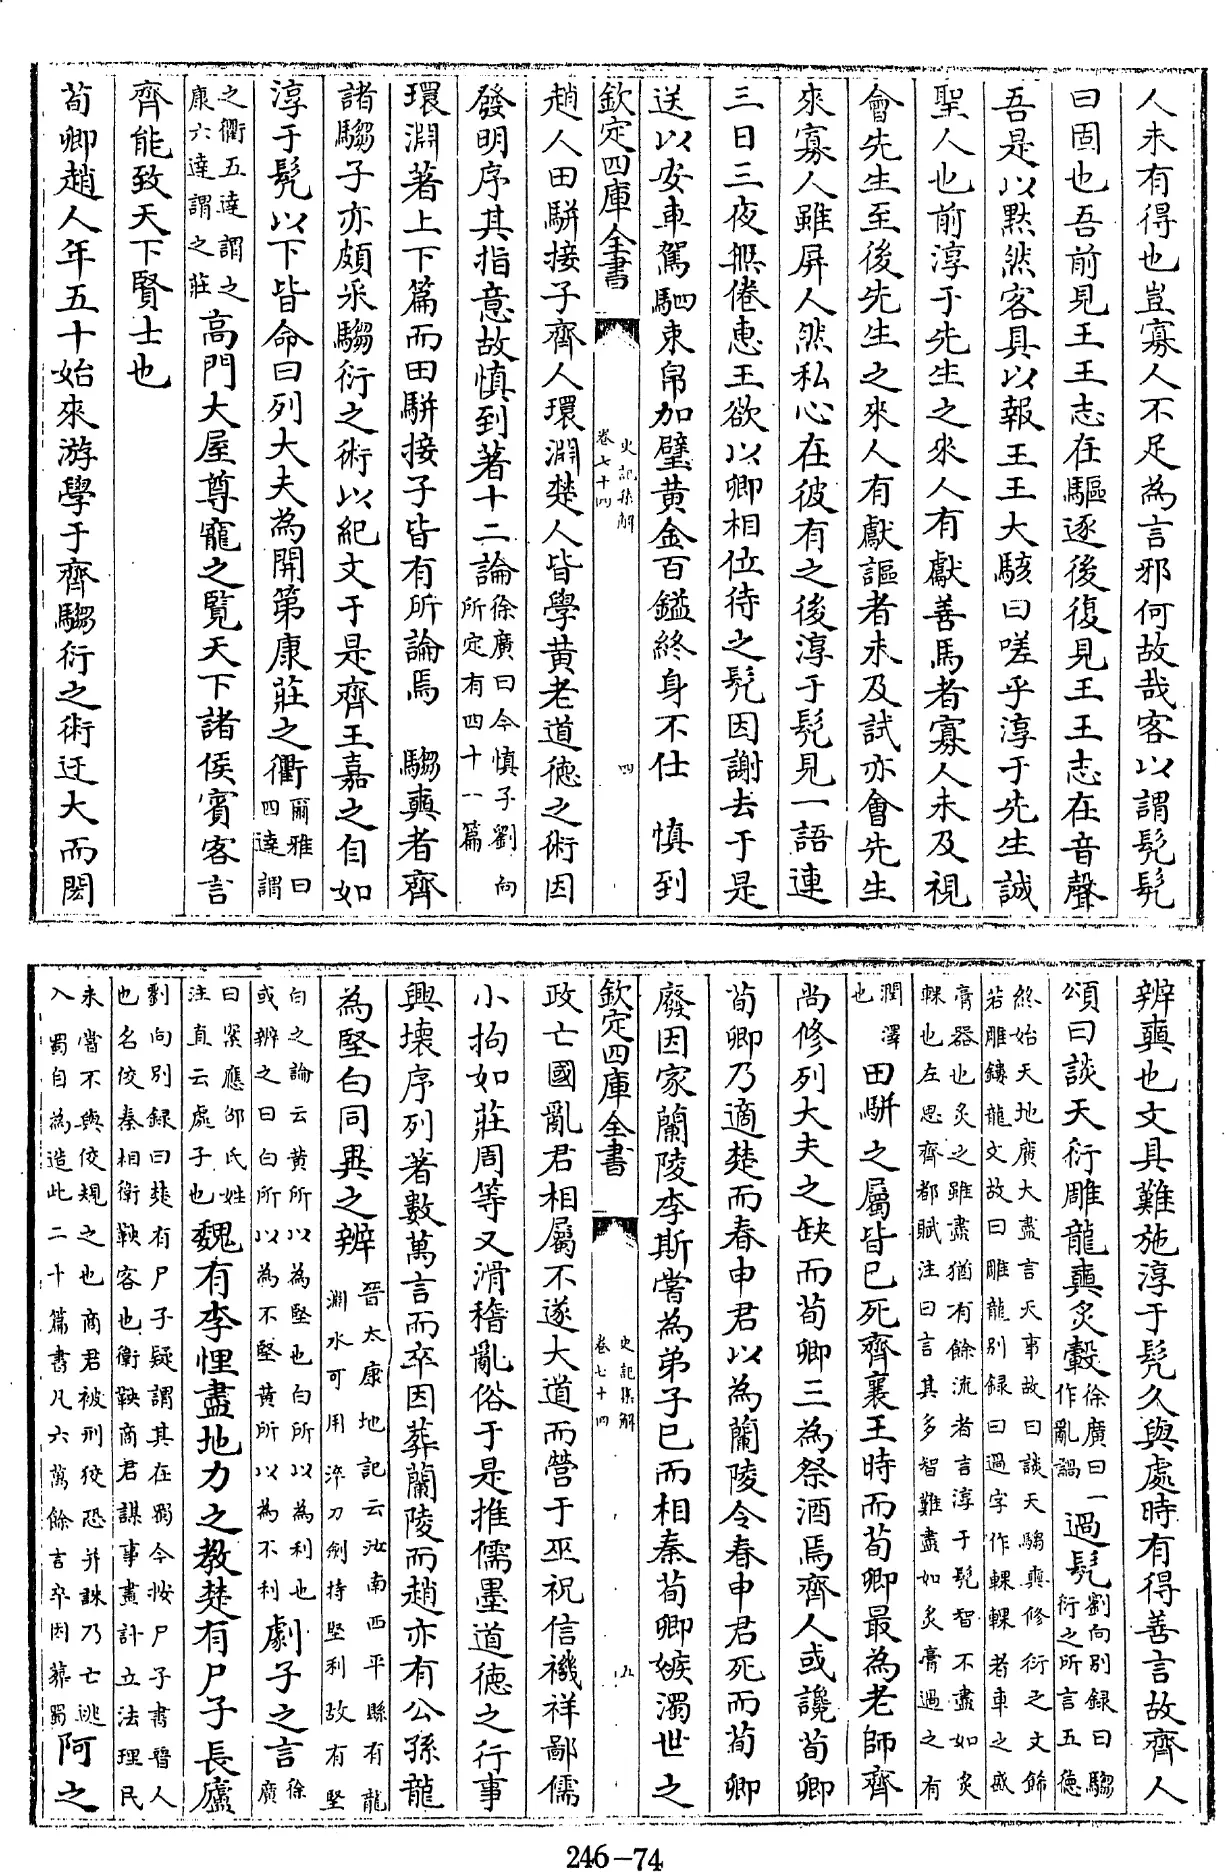 人未有得也豈寡人不足為言邪何故哉客以謂髠髠
曰固也吾前見王王志在驅逐後復見王王志在音聲
吾是以黙然客具以報王王大駭曰嗟乎淳于先生誠
聖人也前淳于先生之來人有獻善馬者寡人未及視
會先生至後先生之來人有獻謳者未及試亦會先生
來寡人雖屏人然私心在彼有之後淳于髠見一語連
三日三夜無倦惠王欲以卿相位待之髠因謝去于是
送以安車駕駟束帛加璧黄金百鎰終身不仕　慎到
欽定四庫全書
史記集解
卷七十四
四
趙人田駢接子齊人環淵楚人皆學黄老道德之術因
發明序其指意故慎到著十二論徐廣曰今慎子劉向
所定有四十一篇
環淵著上下篇而田駢接子皆有所論焉　騶奭者齊
諸騶子亦頗采騶衍之術以紀文于是齊王嘉之自如
淳于髠以下皆命曰列大夫為開第康莊之衢爾雅曰
四達謂
之衢五達謂之
康六達謂之莊高門大屋尊寵之覽天下諸侯賓客言
齊能致天下賢士也
荀卿趙人年五十始來游學于齊騶衍之術迂大而閎
辨奭也文具難施淳于髠久與處時有得善言故齊人
頌曰談天衍雕龍奭炙轂徐廣曰一
作亂調過髠劉向别録曰騶
衍之所言五德
終始天地廣大盡言天事故曰談天騶奭修衍之文飾
若雕鏤龍文故曰雕龍别録曰過字作輠輠者車之盛
膏器也炙之雖盡猶有餘流者言淳于髠智不盡如炙
輠也左思齊都賦注曰言其多智難盡如炙膏過之有
潤澤
也田駢之屬皆已死齊襄王時而荀卿最為老師齊
尚修列大夫之缺而荀卿三為祭酒焉齊人或讒荀卿
荀卿乃適楚而春申君以為蘭陵令春申君死而荀卿
廢因家蘭陵李斯嘗為弟子已而相秦荀卿嫉濁世之
欽定四庫全書
史記集解
卷七十四
五
政亡國亂君相屬不遂大道而營于巫祝信禨祥鄙儒
小拘如莊周等又滑稽亂俗于是推儒墨道德之行事
興壞序列著數萬言而卒因葬蘭陵而趙亦有公孫龍
為堅白同異之辨晋太康地記云汝南西平縣有龍
淵水可用淬刀劍特堅利故有堅
白之論云黄所以為堅也白所以為利也
或辨之曰白所以為不堅黄所以為不利劇子之言徐
廣
曰案應邵氏姓
注直云處子也魏有李悝盡地力之教楚有尸子長盧
劉向别録曰楚有尸子疑謂其在蜀今按尸子書晉人
也名佼秦相衛鞅客也衛鞅商君謀事畫計立法理民
未嘗不與佼規之也商君被刑佼恐并誅乃亡逃
入蜀自為造此二十篇書凡六萬餘言卒因葬蜀阿之
246-74